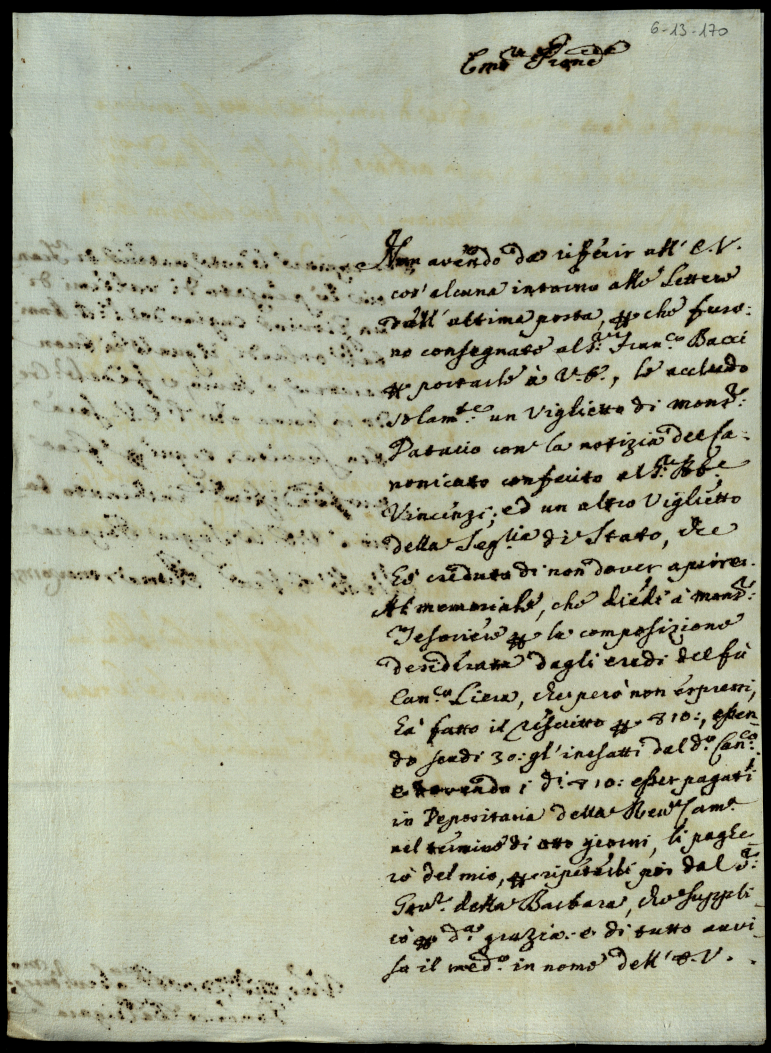 6-13-170
Em.o e R.mo Prone
Non avendo da riferir all' E.V.
cos' alcuna intorno alle Lettere
dall' ultima posta, che furo:
no consegnate al S.r Fran.co Bacci
portarle à V.E., le accludo
solam.te un Viglietto di mons.r:
con la notizia del Ca-
nonicato conferito al S.r Ab.e
Vincenzi; ed un altro Viglietto
della Seg.ria di Stato, che
hò creduto di non dover aprire.
Al memoriale, che diedi à mons.r:
Tesoriere la composizione
desiderata dagli eredi del fù
Can.co Liera, che però non espressi,
hà fatto il rescritto 10:, essen
do scudi 30: gl' inesatti dal d.o Can.co
e dovendo i d.i 10: esser pagati
in Depositaria della Rev.a Cam.a
nel termine di otto giorni, li paghe
rò del mio, ripeterli poi dal S.r:
Gov.r della Barbara, che suppli-
cò d.a grazia: e di tutto avvi-
sa il med.o in nome dell' E.V.